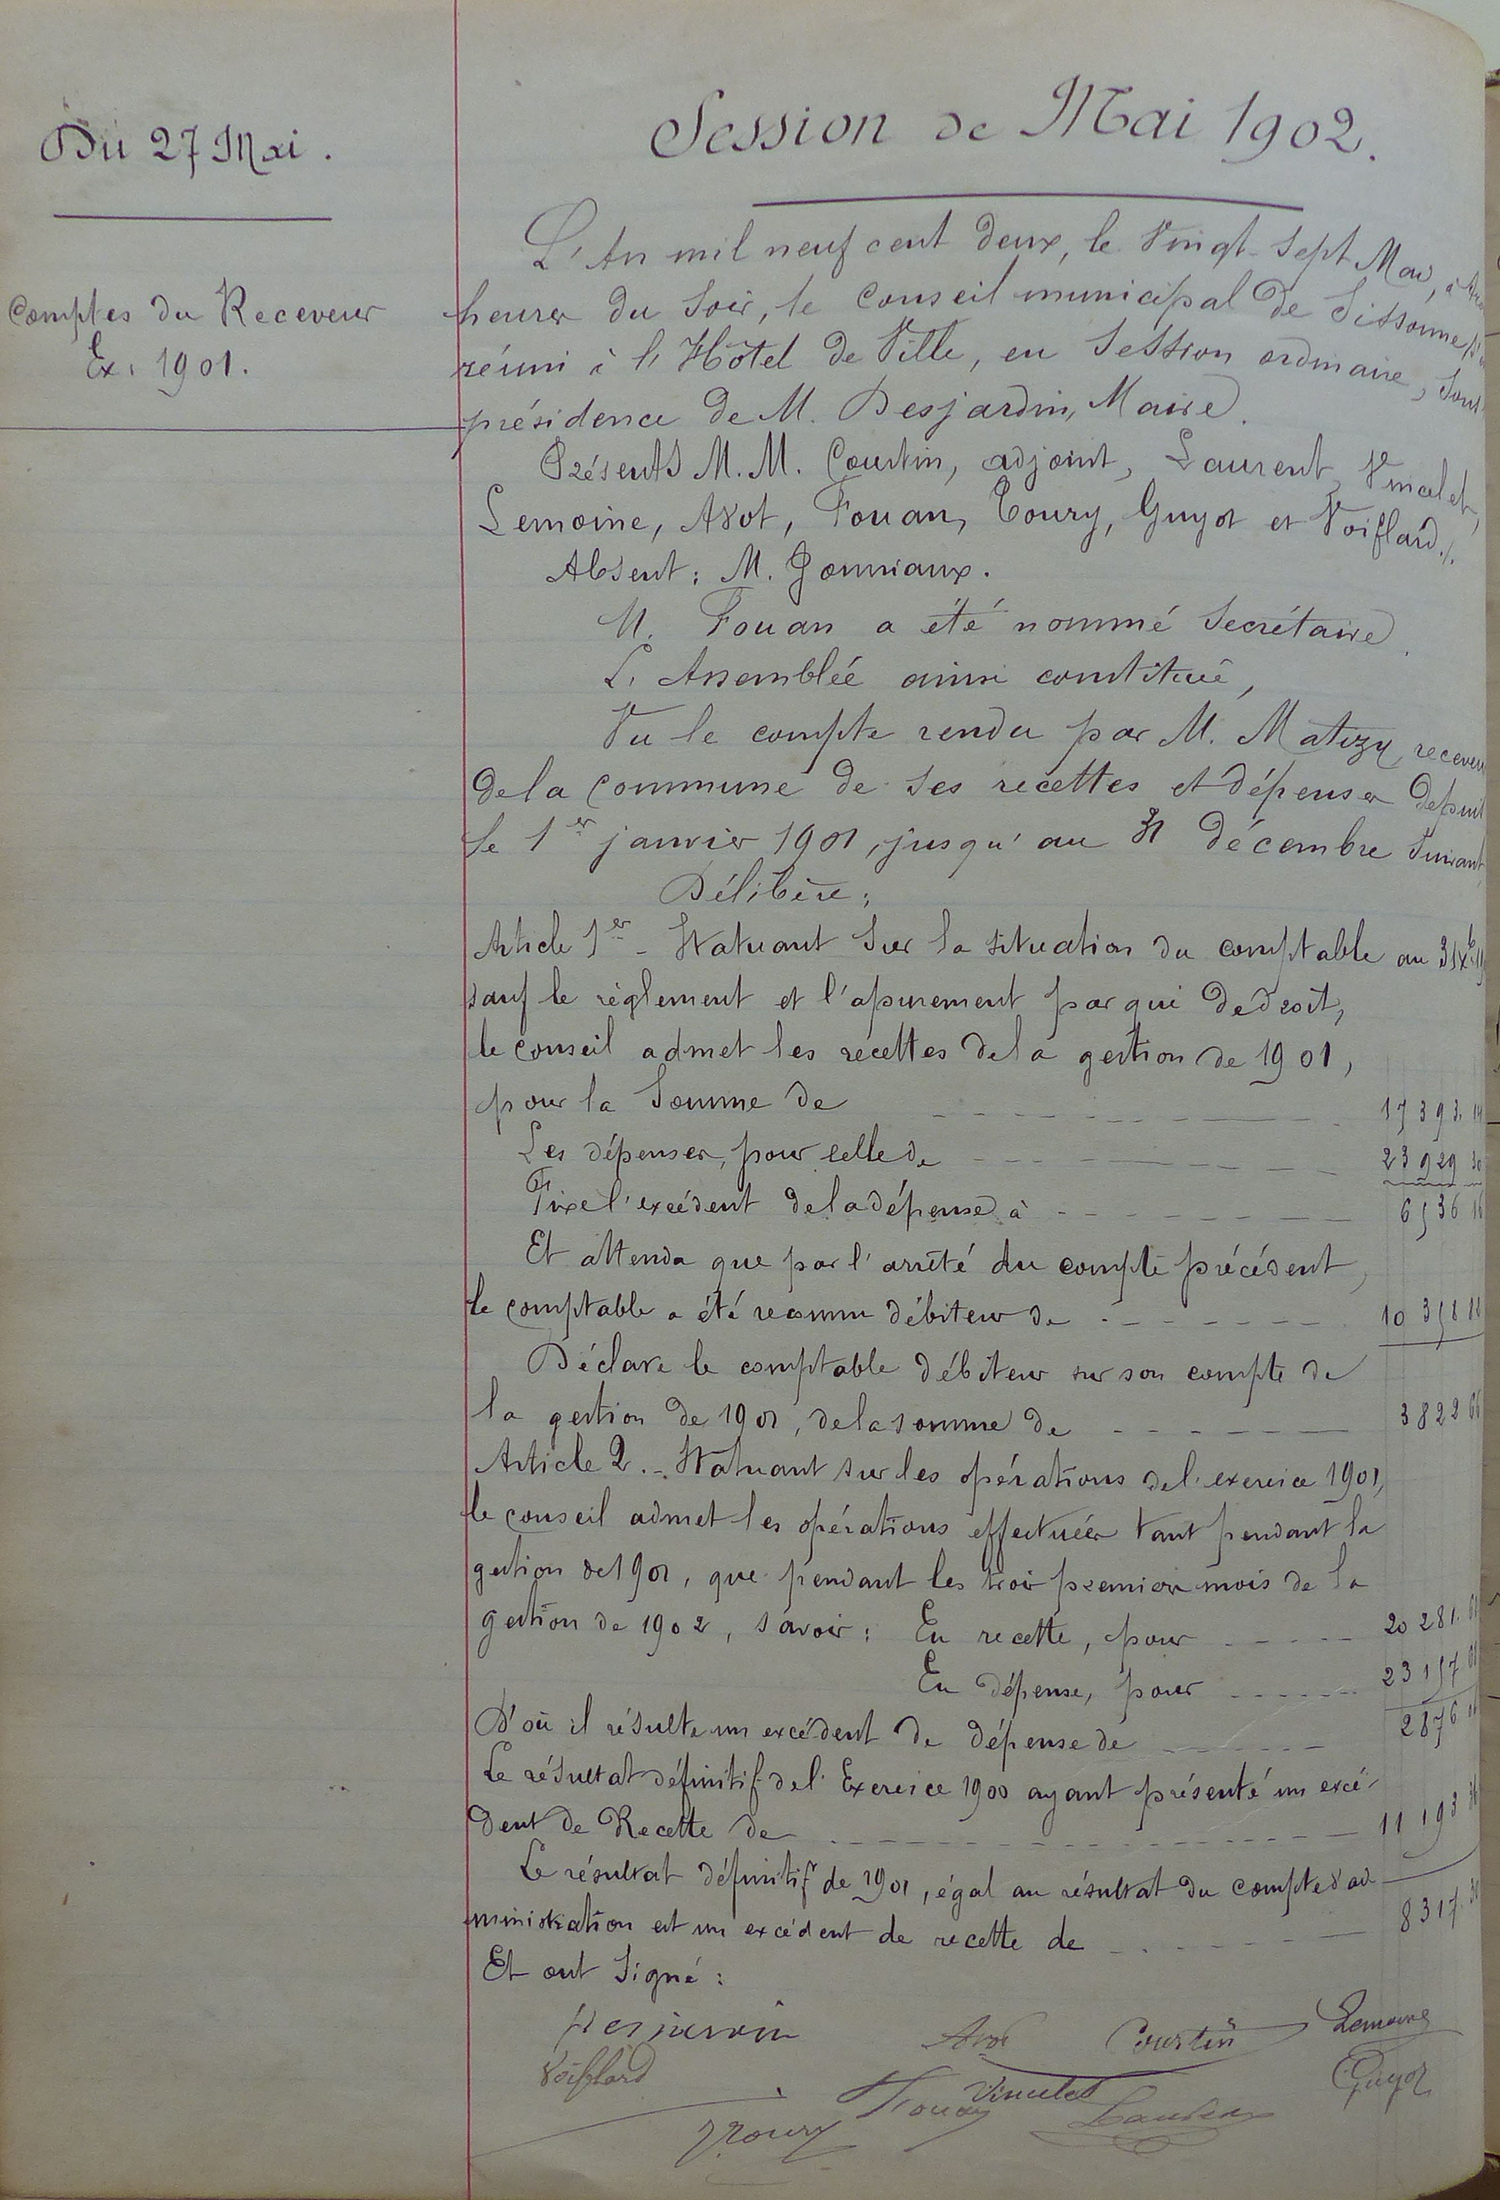 Du 27 Mai.
Session de Mai 1902.
Comptes du Receveur
Ex. 1901.
L'An mil neuf cent deux, le Vingt-Sept Mai, à
heures du Soir, le Conseil municipal de Sissonne
réuni à l'Hôtel de Ville, en Session ordinaire, Sous
présidence de M. Desjardin, Maire.
Présents M.M. Courtin, adjoint, Laurent, Vincelet,
Lemoine, Avot, Fouan, Toury, Guyot et Voiflard.
Absent: M. Jonniaux.
M. Fouan a été nommé Secrétaire.
L'Assemblée ainsi constituée,
Vu le compte rendu par M. receveur
de la Commune de ses recettes et dépenses depuis
le 1er janvier 1901, jusqu'au 31 décembre Suivant
Délibère:
Article 1er - Statuant Sur la situation du comptable au 31 Xbre
sauf le règlement et l'apurement par qui de droit,
le conseil admet les recettes de la gestion de 1901,
pour la Somme de 17393.14
Les dépenses, pour celle de 23929 30
Fixe l'excédent de la dépense à 6536 16
Et attendu que par l'arrêté du compte précédent,
le comptable a été reconnu débiteur de 10 358
Déclare le comptable débiteur sur son compte de
la gestion de 1901, de la somme de 3822 66
Article 2. - Statuant sur les opérations de l'exercice 1901,
le conseil admet les opérations effectuées tant pendant la
gestion de 1901, que pendant les trois premiers mois de la
gestion de 1902, savoir: En recette, pour 20 281.
En dépense, pour 23157
D'où il résulte un excédent de dépense de 2876
Le résultat définitif de l'Exercice 1900 ayant présenté un excé-
dent de Recette de 11 193
Le résultat définitif de 1901, égal au résultat du compte d'ad-
ministration est un excédent de recette de 8317.
Et ont Signé:
Desjardin Avot Courtin Lemoine
Voiflard Vincelet Guyot
Toury Fouan Laurent